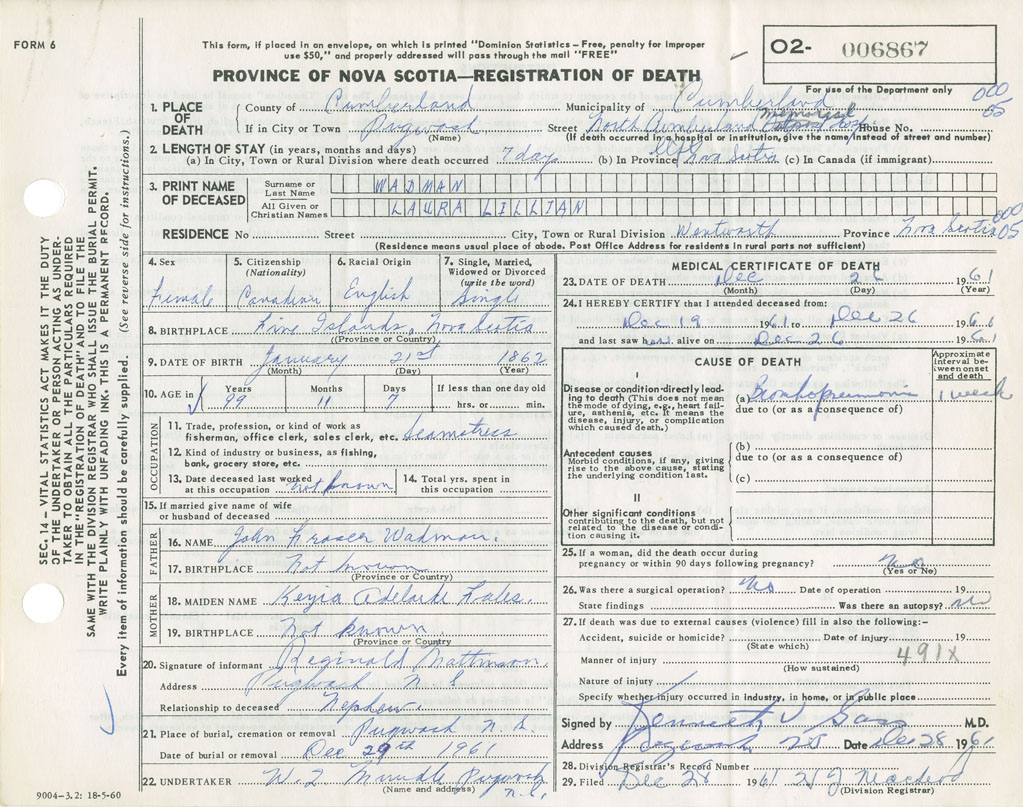 FORM 6
This form, if placed in an envelope, on which is printed "Dominion Statistics – Free, penalty for improper
use $50," and properly addressed will pass through the mail "FREE"
02- 006867
PROVINCE OF NOVA SCOTIA—REGISTRATION OF DEATH
For use of the Department only
000
05
1. PLACE OF DEATH
County of Cumberland Municipality of Cumberland
If in City or Town Pugwash Street North Cumberland Memorial Hosp House No.
(Name) (If death occurred in a hospital or institution, give the name instead of street and number)
2. LENGTH OF STAY (in years, months and days)
(a) In City, Town or Rural Division where death occurred 7 days (b) In Province Life Nova Scotia (c) In Canada (if immigrant)
3. PRINT NAME OF DECEASED
Surname or Last Name WADMAN
All Given or Christian Names LAURA LILLIAN
RESIDENCE No Street City, Town or Rural Division Wentworth Province Nova Scotia
000
05
(Residence means usual place of abode. Post Office Address for residents in rural parts not sufficient)
4. Sex Female
5. Citizenship (Nationality) Canadian
6. Racial Origin English
7. Single, Married, Widowed or Divorced (write the word) Single
8. BIRTHPLACE Five Islands, Nova Scotia
(Province or Country)
9. DATE OF BIRTH January 21st 1862
(Month) (Day) (Year)
10. AGE in Years 99 Months 11 Days 7 If less than one day old hrs. or min.
OCCUPATION
11. Trade, profession, or kind of work as
fisherman, office clerk, sales clerk, etc. Seamstress
12. Kind of industry or business, as fishing,
bank, grocery store, etc.
13. Date deceased last worked
at this occupation not known
14. Total yrs. spent in
this occupation
15. If married give name of wife
or husband of deceased
FATHER
16. NAME John Fraser Wadman.
17. BIRTHPLACE Not known
(Province or Country)
MOTHER
18. MAIDEN NAME Kezia Adelaide
19. BIRTHPLACE Not known
(Province or Country
20. Signature of informant Reginald Mattinson.
Address Pugwash N S
Relationship to deceased Nephew.
21. Place of burial, cremation or removal Pugwash N. S.
Date of burial or removal Dec 29th 1961
22. UNDERTAKER Pugwash N.S.
(Name and address)
MEDICAL CERTIFICATE OF DEATH
23. DATE OF DEATH Dec 26 1961
(Month) (Day) (Year)
24. I HEREBY CERTIFY that I attended deceased from:
Dec 19 1961 to Dec 26 1961
and last saw her alive on Dec 26 1961
CAUSE OF DEATH
Approximate interval between onset and death
I
Disease or condition directly leading to death (This does not mean
the mode of dying, e.g., heart failure, asthenia, etc. It means the
disease, injury, or complication
which caused death.)
(a) Bronchopneumonia 1 week
due to (or as a consequence of)
Antecedent causes
Morbid conditions, if any, giving
rise to the above cause, stating
the underlying condition last.
(b)
due to (or as a consequence of)
(c)
II
Other significant conditions
contributing to the death, but not
related to the disease or condition causing it.
25. If a woman, did the death occur during
pregnancy or within 90 days following pregnancy? no
(Yes or No)
26. Was there a surgical operation? No Date of operation 19
State findings Was there an autopsy? no
27. If death was due to external causes (violence) fill in also the following:-
Accident, suicide or homicide? Date of injury 19
(State which)
491X
Manner of injury
(How sustained)
Nature of injury
Specify whether injury occurred in industry, in home, or in public place
Signed by Kenneth V Gass M.D.
Address Pugwash NS Date Dec 28 1961
28. Division Registrar's Record Number
29. Filed Dec 28 1961
(Division Registrar)
SEC. 14 – VITAL STATISTICS ACT MAKES IT THE DUTY
OF THE UNDERTAKER OR PERSON ACTING AS UNDERTAKER TO OBTAIN ALL THE PARTICULARS REQUIRED
IN THE "REGISTRATION OF DEATH" AND TO FILE THE
SAME WITH THE DIVISION REGISTRAR WHO SHALL ISSUE THE BURIAL PERMIT.
WRITE PLAINLY WITH UNFADING INK. THIS IS A PERMANENT RECORD.
Every item of information should be carefully supplied. (See reverse side for instructions.)
9004-3.2: 18-5-60